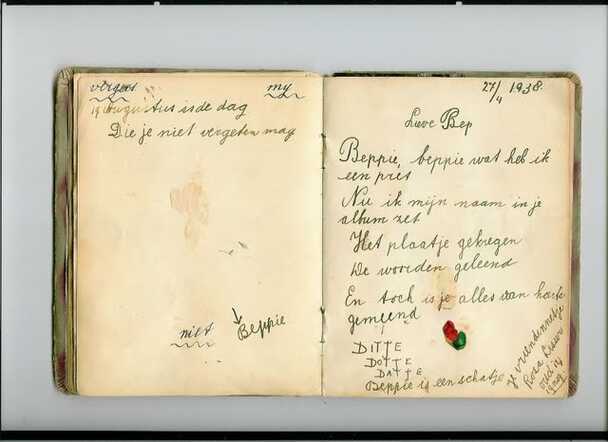 vergeet my
19 augustus is de dag
Die je niet vergeten mag
niet Beppie
27/4 1938.
Lieve Bep
Beppie, beppie wat heb ik
een pret
Nu ik mijn naam in je
album zet
Het plaatje gekregen
De woorden geleend
En toch is je alles van harte
gemeend
DITTE
DOTTE
DATTE
Beppie is een schatje
Je vriendinnetje
Rosa
oud 14